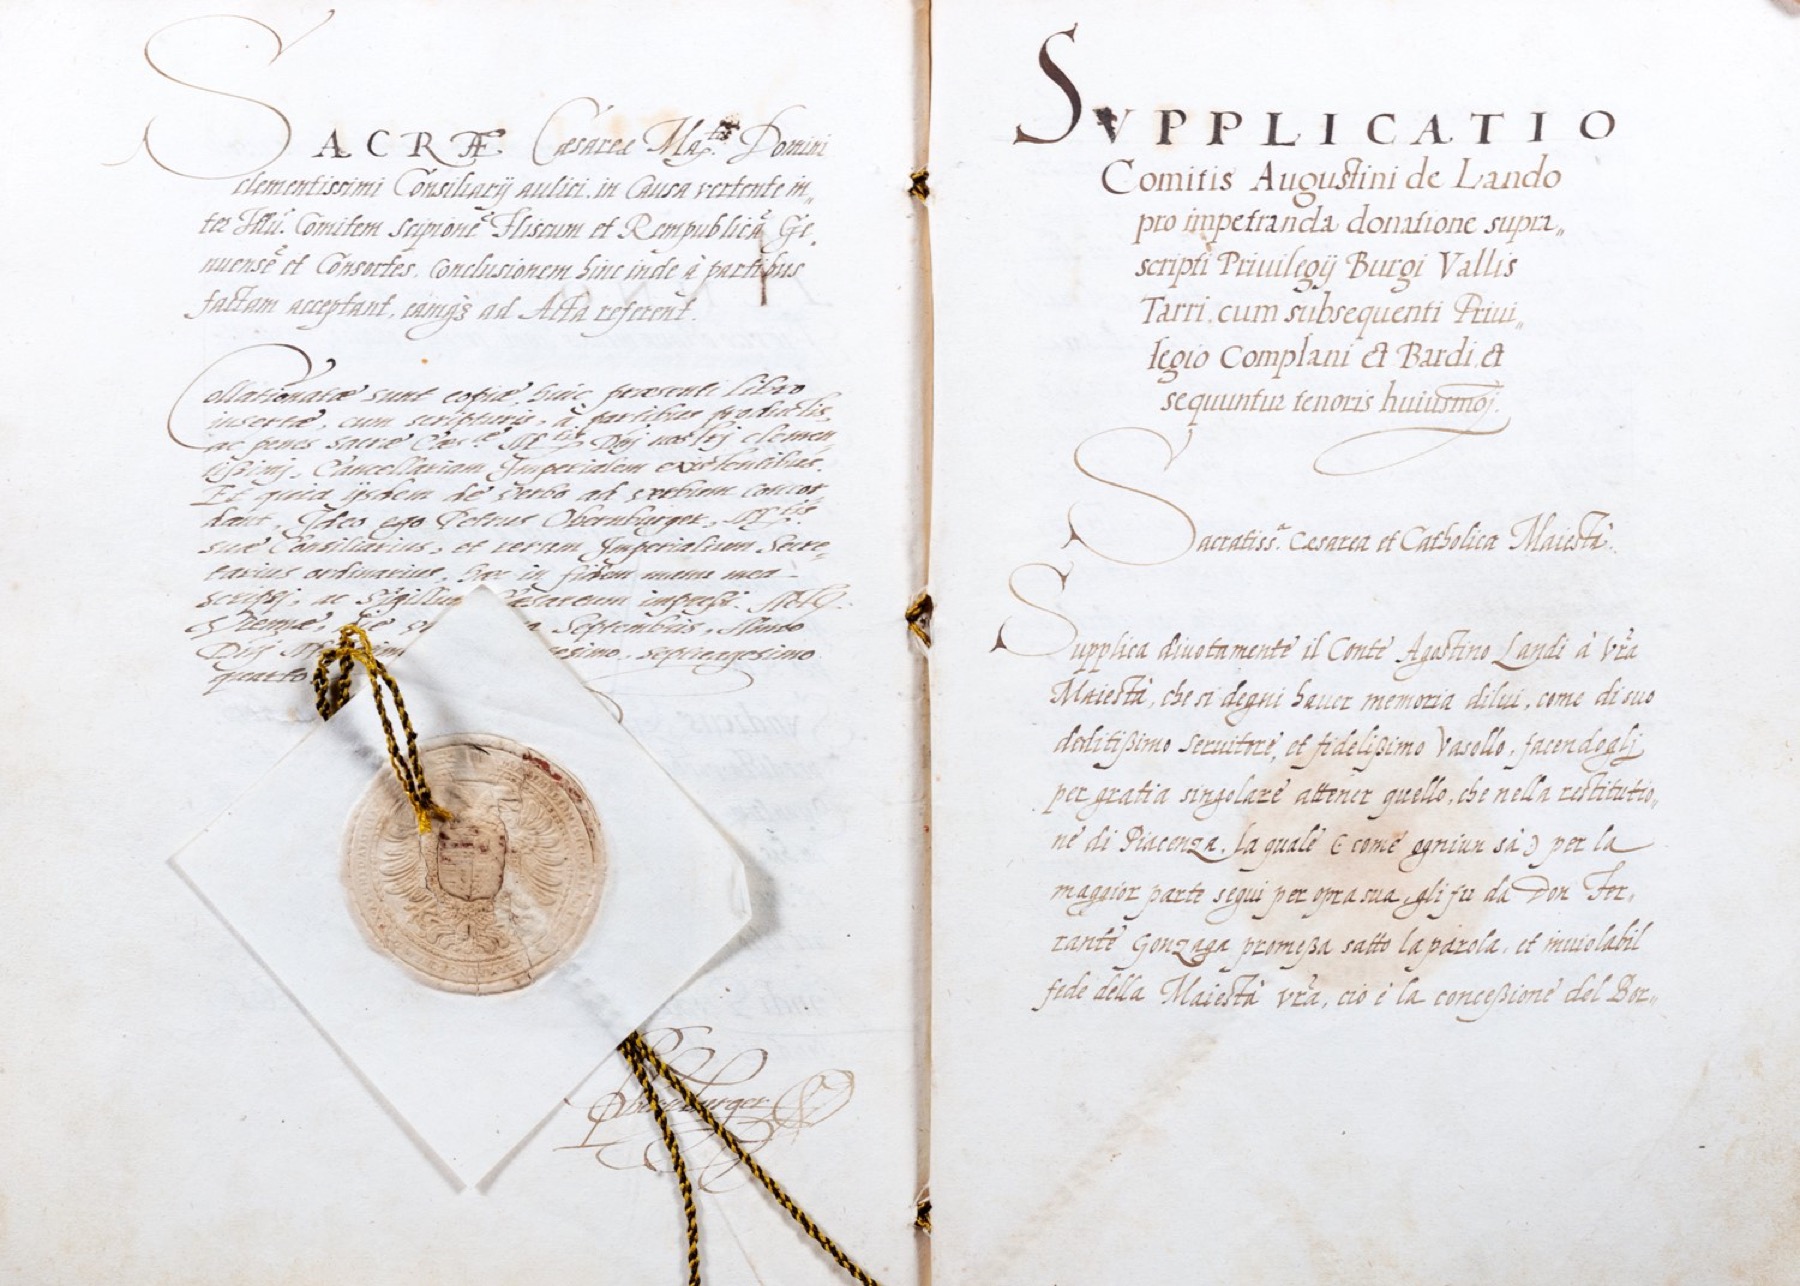 SACRÆ Cæsareæ Ma.tis Domini
clementissimi Consiliarij aulici, in Causa vertente in„
ter Illu. Comitem Scipionē Fliscum et Rempublicā Ge„
nuensē et Consortes, Conclusionem hinc inde à partibus
factam acceptant, eamq́ ad Acta referent.
Collationatæ sunt copiæ, huic præsenti libro
insertæ, cum scripturis, à partibus productis,
ac penes Sacræ Cæs.ræ M.tis Dnj nostrj clemen„
tissimj, Cancellariam Imperialem existentibus.
Et quia ijsdem de verbo ad verbum concor„
dant, Ideo ego Petrus Obernburger, M.tis
suæ Consiliarius, et rerum Imperialium Secre„
tarius ordinarius, hæc in fidem manu mea
scripsj, ac Sigillum Cæsareum impressi.
Viennæ, Septembris, Anno
Dnj esimo, septuagesimo
quarto
Obernburger
SVPPLICATIO
Comitis Augustini de Lando
pro impetranda donatione supra„
scripti Priuilegij Burgi Vallis
Tarri, cum subsequenti Priui„
legio Complani et Bardi, et
sequuntur tenoris huiusmoj.
Sacratiss.ª Cæsarea et Catholica Maiestà.
Supplica diuotamente il Conte Agostino Landi à vr̃a
Maiestà, che si degni hauer memoria di lui, come di suo
deditißimo Seruitore, et fidelißimo Vasallo, facendoglj
per gratia singolare attener quello, che nella restitutio„
ne di Piacenza, la quale (come ogniun sà) per la
maggior parte seguì per opra sua, gli fu da Don Fer„
rante Gonzaga promeßa sotto la parola, et inuiolabil
fede della Maiestà vr̃a, cio è la conceßione del Bor„